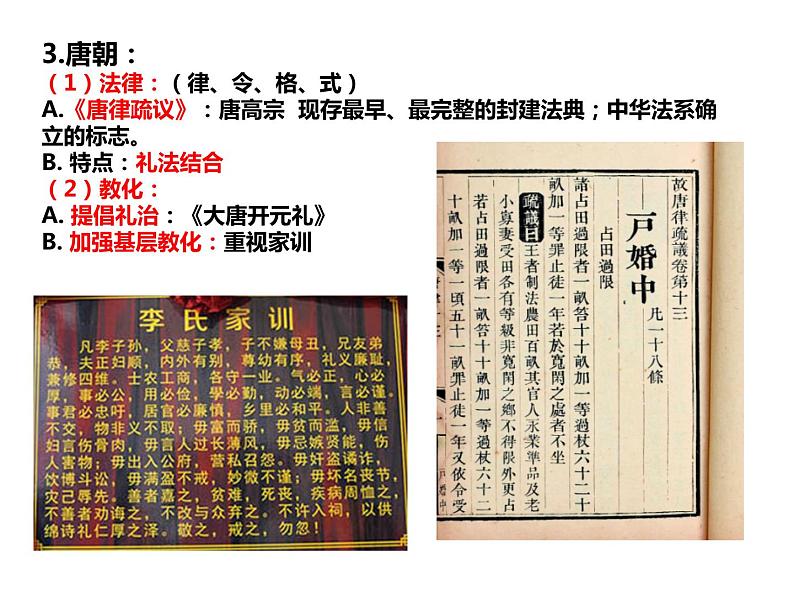 3.唐朝：
（1）法律：（律、令、格、式）
A.《唐律疏议》：唐高宗 现存最早、最完整的封建法典；中华法系确
立的标志。
B. 特点：礼法结合
（2）教化：
A. 提倡礼治：《大唐开元礼》
B. 加强基层教化：重视家训
李氏家训
凡李子孙，父慈子孝，子不嫌母丑，兄友弟
恭，夫正妇顺，内外有别，尊幼有序，礼义廉耻，
兼修四维。士农工商，各守一业。气必正，心必
厚，事必公，用必俭，學必勤，动必端，言必谨。
事君必忠吁，居官必廉慎，乡里必和平。人非善
不交，物非义不取；毋富而骄，毋贫而滥，毋信
妇言伤骨肉，毋言人过长薄风，毋忌嫉贤能，伤
人害物；毋出入公府，营私召怨。毋奸盗谲诈，
饮博斗讼，毋满盈不戒，妙微不谨；毋坏名丧节，
灾己辱先。善者嘉之，贫难，死丧，疾病周恤之，
不善者劝诲之，不改与众弃之。不许入祠，以供
绵诗礼仁厚之泽。敬之，戒之，勿忽！
故唐律疏議卷第十三
戸婚中 凡一十八條
占田過限
諸占田過限者一畝笞十十畝加一等過杖六十二十
畝加一等罪止徒一年若於寬閑之處者不坐
疏議曰王者制法農田百畝其官人永業準品及老
小寡妻受田各有等級非寬閑之鄉不得限外更占
若占田過限者一畝笞十十畝加一等過杖六十二
十畝加一等一頃五十一畝罪止徒一年又依令受
戸婚中